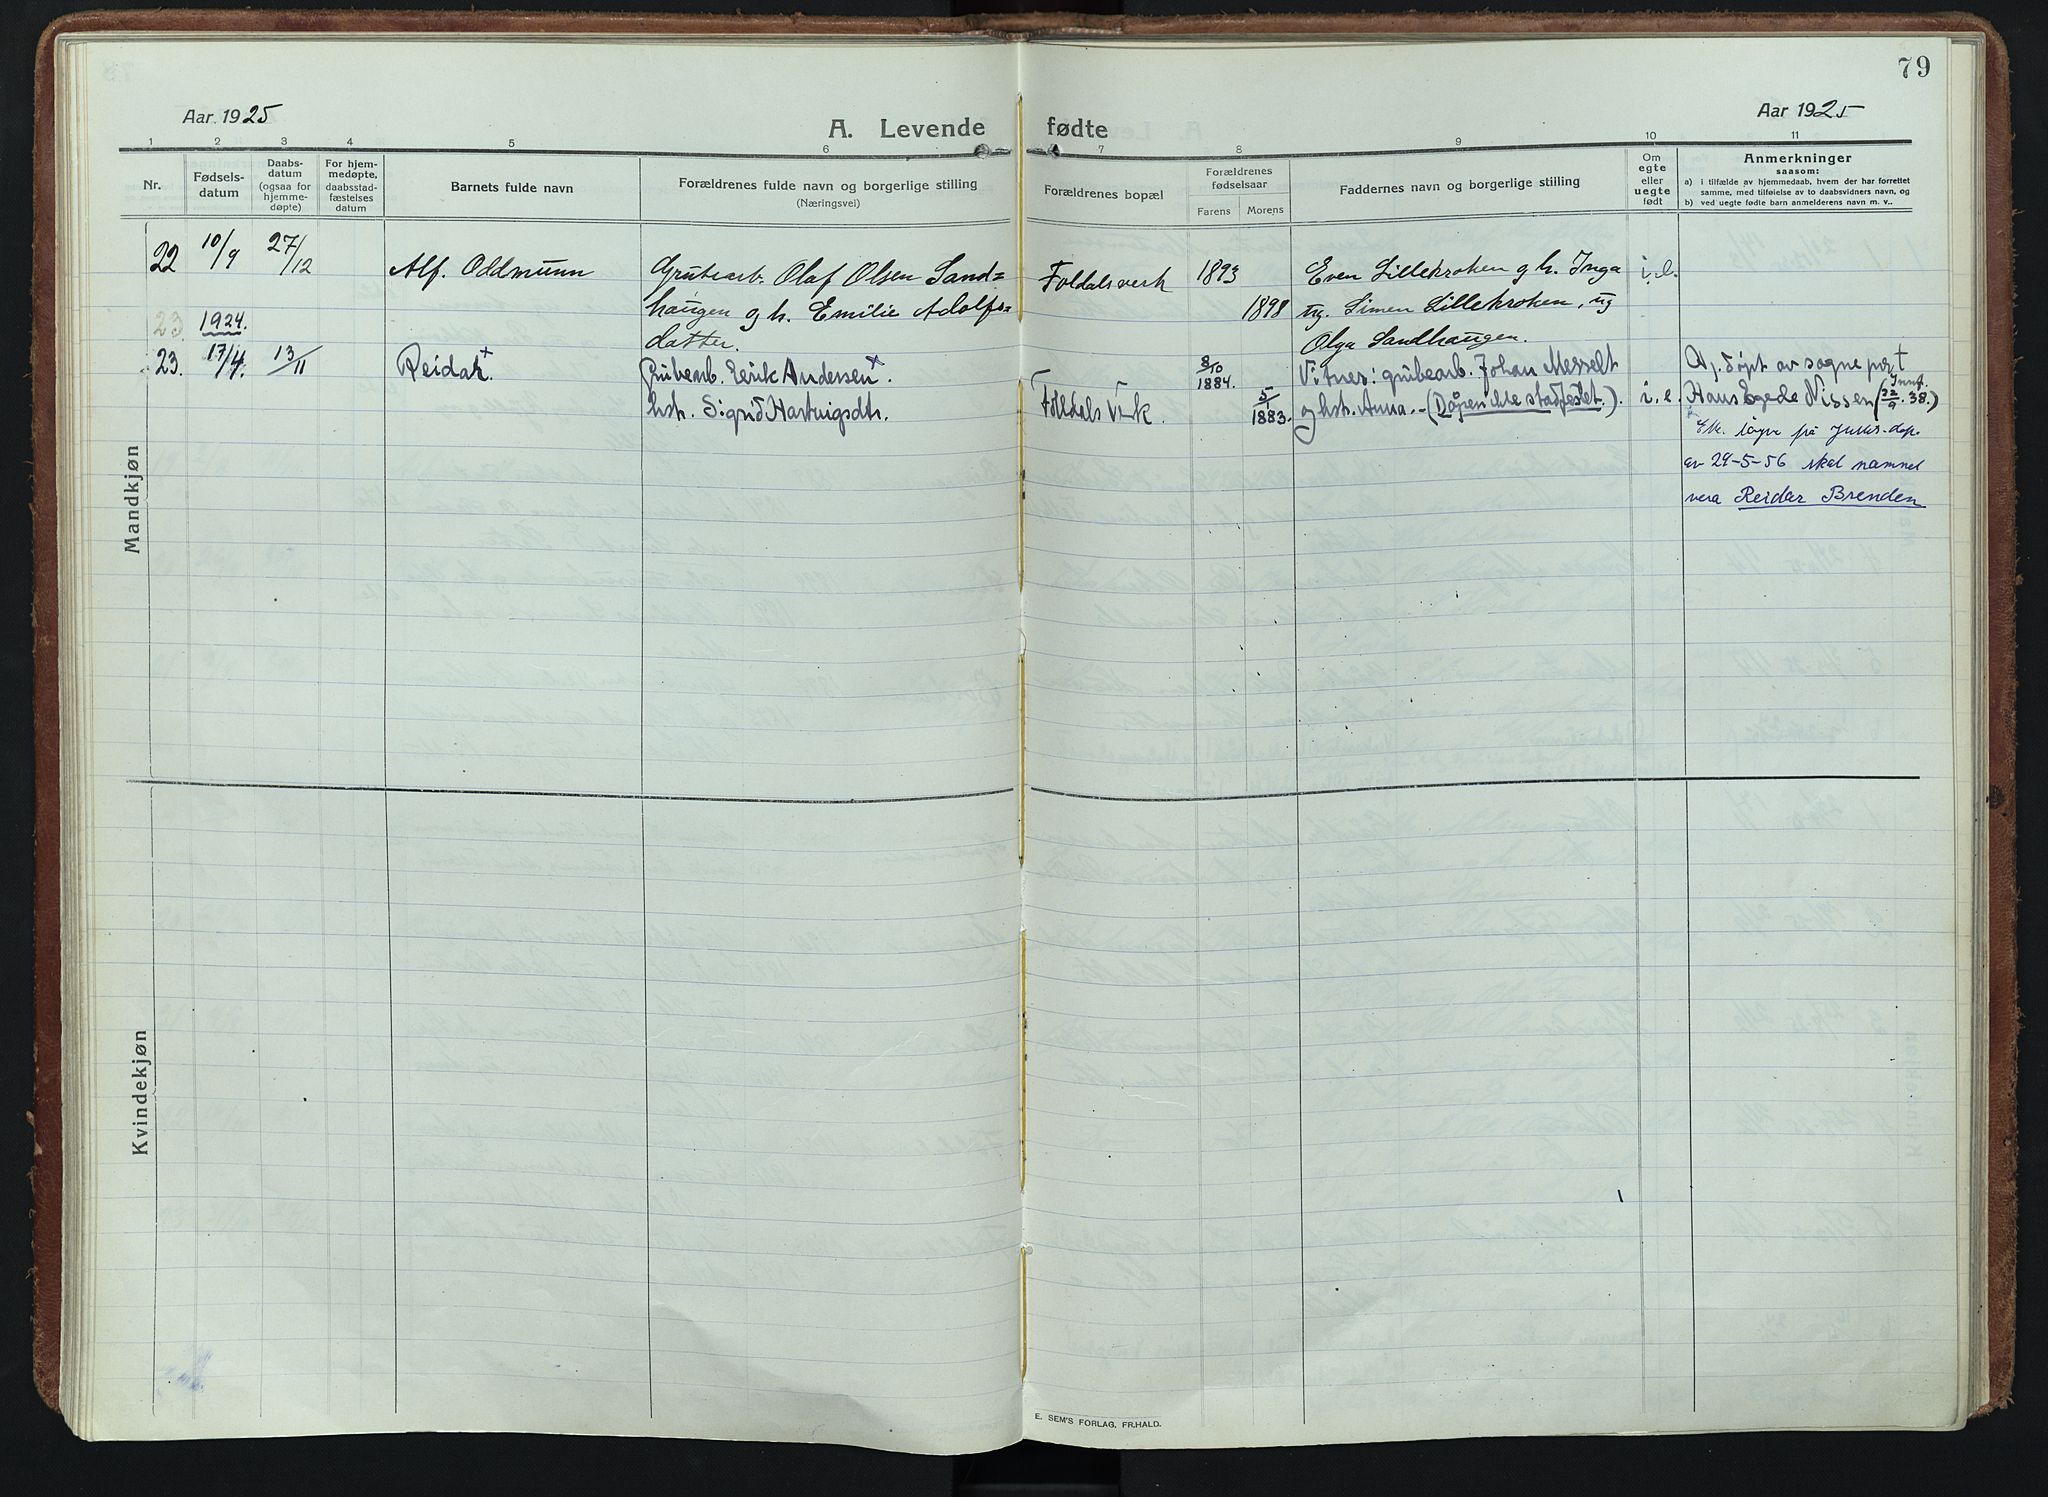 79
Aar. 1925
Aar 1925
A. Levende fødte
1 2 3 4 5 6 7 8 9 10 11
Nr.
Fødsels-
datum
Daabs-
datum
(ogsaa for
hjemme-
døpte)
For hjem-
medøpte,
daabsstad-
fæstelses
datum
Barnets fulde navn
Forældrenes fulde navn og borgerlige stilling
(Næringsvei)
Forældrenes bopæl
Forældrenes
fødselsaar
Farens Morens
Faddernes navn og borgerlige stilling
Om
egte
eller
uegte
født
Anmerkninger
saasom:
a) i tilfælde av hjemmedaab, hvem der har forrettet
samme, med tilføielse av to daabsvidners navn, og
b) ved uegte fødte barn anmelderens navn m. v..
Mandkjøn
22 10/9 27/12 Alf. Oddmunn Grubearb. Olaf Olsen Sand= Foldalsverk 1893 Even Lillekroken g h. Inga i.e.
haugen og h. Emilie Adolfs= 1898 ug. Simen Lillekroken, ug
23 1924. datter. Olga Sandhaugen.
23. 17/4. 13/11 Reidar x Grubearb. Eerik Andersen x. 8/10 1884. Vitner: grubearb. Johan Messelt Aj. døpt av sogneprest
hstr. Sigrid Hartvigsdtr. Folldals Verk. 5/1 1883. og hstr. Anna. - (Dåpen ikke stadfestet.). i. e. Hans Egede Nissen (Innf. 22/9. 38.)
Etter løyve på Justis-dep.
av 29-5-56 skal namnet
vera Reidar Brenden
Kvindekjøn
E. SEM'S FORLAG, FR.HALD.